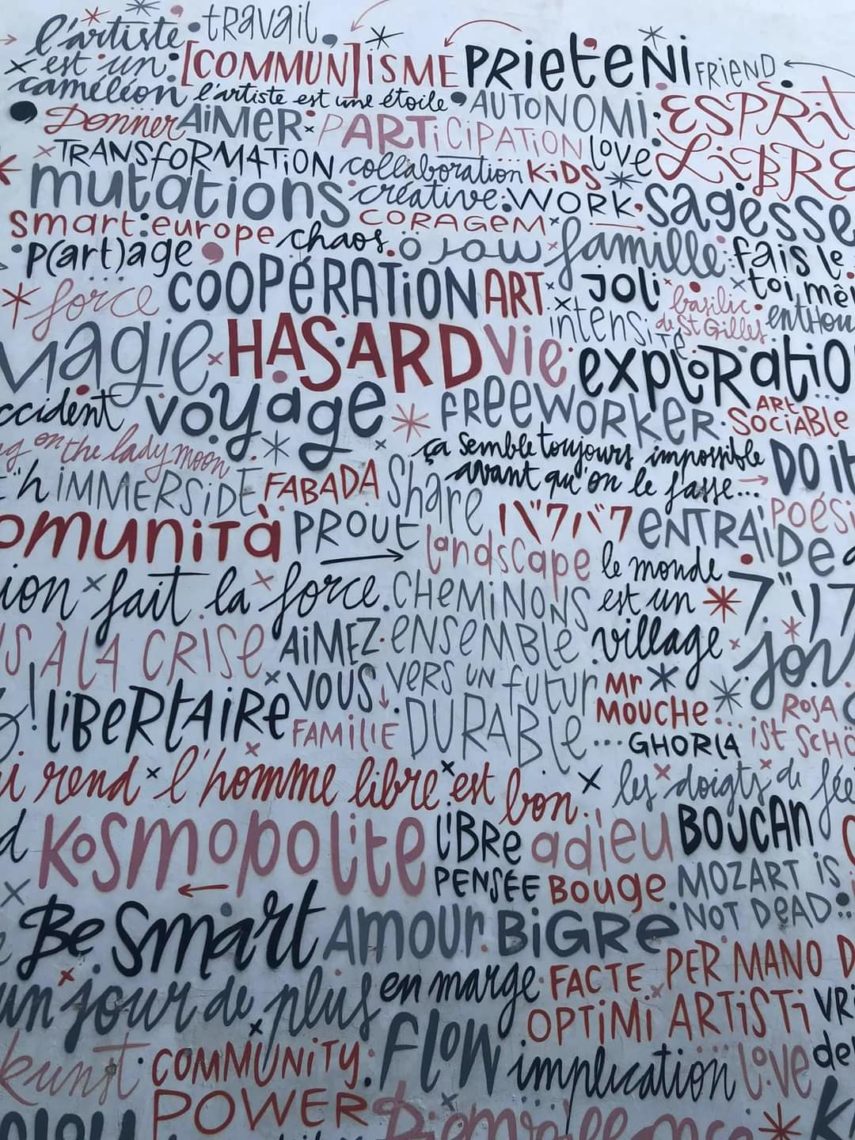 l'artiste travail
est un [COMMUN]ISME PRIETENI FRIEND
caméléon l'artiste est une étoile AUTONOMI ESPRIT
Donner AIMER PARTICIPATION love LIBRE
TRANSFORMATION collaboration KIDS
mutations créative WORK sagesse
smart europe chaos CORAGEM famille fais le
P(art)age joli toi mê
force COOPÉRATION ART intensité basilic de St Gilles enthou
Magie HASARD Vie exploratio
ccident voyage FREEWORKER ART SOCIABLE
ng on the lady moon ça semble toujours impossible DO it
IMMERSIDE FABADA Share avant qu'on le fasse...
omunità PROUT バクバク ENTRAIDE Poési
landscape le monde
ion fait la force CHEMINONS est un
S À LA CRISE AIMEZ ensemble village
! LIBERTAIRE VOUS VERS UN futur Mr MOUCHE ROSA
FAMILLE DURABLE... GHORLA ist SCHÖ
i rend l'homme libre est bon les doigts de fée
d Kosmopolite LIBRE adieu BOUCAN
PENSÉE Bouge MOZART IS
Be Smart AMOUR BIGRE NOT DEAD
un jour de plus en marge FACTE PER MANO D
OPTIMI ARTISTI
kunst COMMUNITY FLOW implication love de
POWER Bienveillance